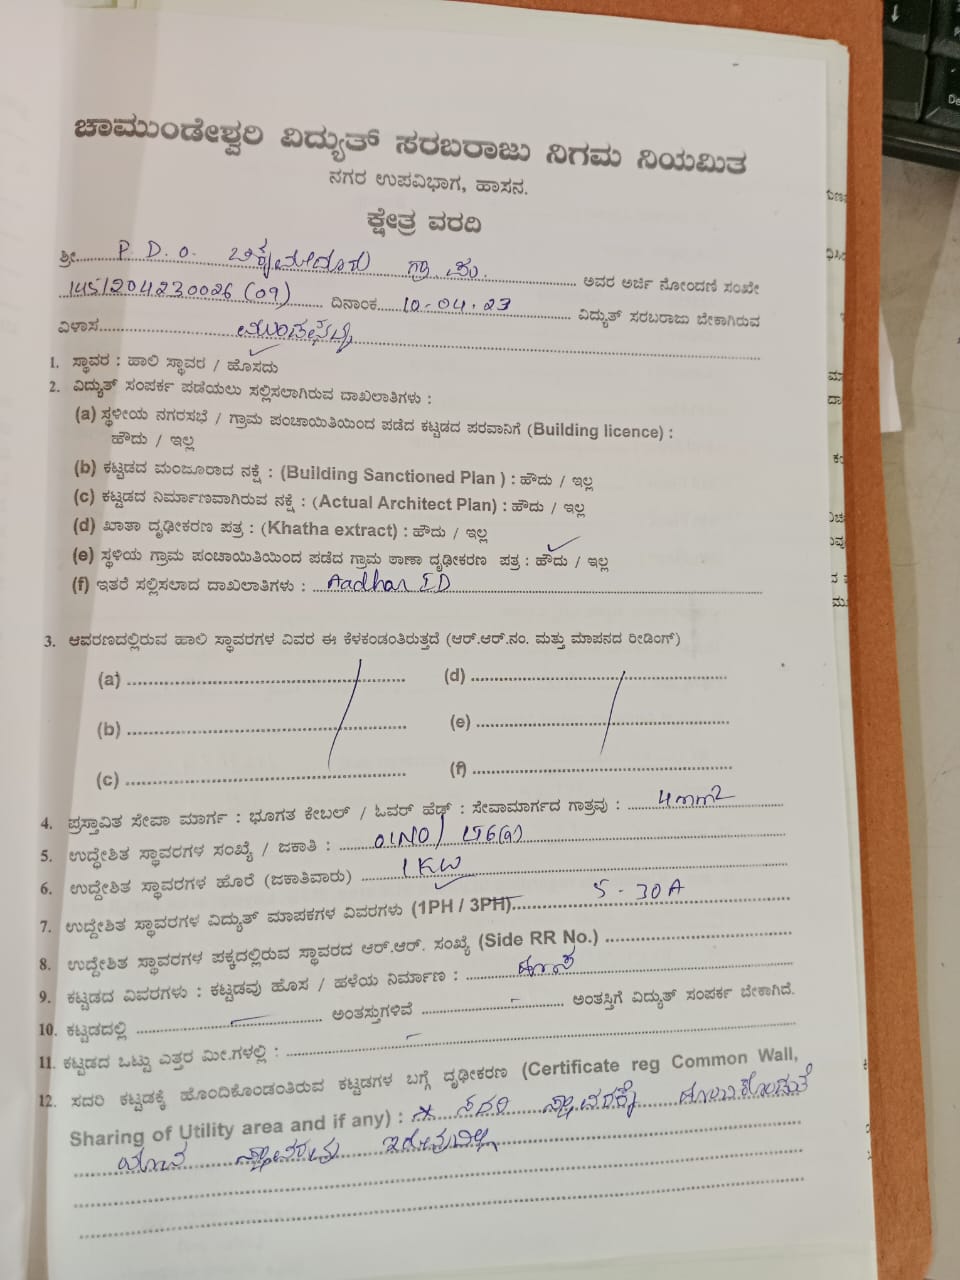 ಚಾಮುಂಡೇಶ್ವರಿ ವಿದ್ಯುತ್ ಸರಬರಾಜು ನಿಗಮ ನಿಯಮಿತ
ನಗರ ಉಪವಿಭಾಗ, ಹಾಸನ.
ಕ್ಷೇತ್ರ ವರದಿ
ಶ್ರೀ P. D. O. ಗ್ರಾ ಪಂ ಅವರ ಅರ್ಜಿ ನೋಂದಣಿ ಸಂಖೇ
145/204230026 (09) ದಿನಾಂಕ 10-04-23 ವಿದ್ಯುತ್ ಸರಬರಾಜು ಬೇಕಾಗಿರುವ
ವಿಳಾಸ
1. ಸ್ಥಾವರ : ಹಾಲಿ ಸ್ಥಾವರ / ಹೊಸದು
2. ವಿದ್ಯುತ್ ಸಂಪರ್ಕ ಪಡೆಯಲು ಸಲ್ಲಿಸಲಾಗಿರುವ ದಾಖಲಾತಿಗಳು :
(a) ಸ್ಥಳೀಯ ನಗರಸಭೆ / ಗ್ರಾಮ ಪಂಚಾಯಿತಿಯಿಂದ ಪಡೆದ ಕಟ್ಟಡದ ಪರವಾನಿಗೆ (Building licence) :
ಹೌದು / ಇಲ್ಲ
(b) ಕಟ್ಟಡದ ಮಂಜೂರಾದ ನಕ್ಷೆ : (Building Sanctioned Plan ) : ಹೌದು / ಇಲ್ಲ
(c) ಕಟ್ಟಡದ ನಿರ್ಮಾಣವಾಗಿರುವ ನಕ್ಷೆ : (Actual Architect Plan) : ಹೌದು / ಇಲ್ಲ
(d) ಖಾತಾ ದೃಢೀಕರಣ ಪತ್ರ : (Khatha extract) : ಹೌದು / ಇಲ್ಲ
(e) ಸ್ಥಳಿಯ ಗ್ರಾಮ ಪಂಚಾಯಿತಿಯಿಂದ ಪಡೆದ ಗ್ರಾಮ ಠಾಣಾ ದೃಢೀಕರಣ ಪತ್ರ : ಹೌದು / ಇಲ್ಲ
(f) ಇತರೆ ಸಲ್ಲಿಸಲಾದ ದಾಖಲಾತಿಗಳು : Aadhar ID
3. ಆವರಣದಲ್ಲಿರುವ ಹಾಲಿ ಸ್ಥಾವರಗಳ ವಿವರ ಈ ಕೆಳಕಂಡಂತಿರುತ್ತದೆ (ಆರ್.ಆರ್.ನಂ. ಮತ್ತು ಮಾಪನದ ರೀಡಿಂಗ್)
(a) (d)
(b) (e)
(c) (f)
4. ಪ್ರಸ್ತಾವಿತ ಸೇವಾ ಮಾರ್ಗ : ಭೂಗತ ಕೇಬಲ್ / ಓವರ್ ಹೆಡ್ : ಸೇವಾಮಾರ್ಗದ ಗಾತ್ರವು : 4mm2
5. ಉದ್ದೇಶಿತ ಸ್ಥಾವರಗಳ ಸಂಖ್ಯೆ / ಜಕಾತಿ : 01NO / LT6(a)
6. ಉದ್ದೇಶಿತ ಸ್ಥಾವರಗಳ ಹೊರೆ (ಜಕಾತಿವಾರು) 1KW
7. ಉದ್ದೇಶಿತ ಸ್ಥಾವರಗಳ ವಿದ್ಯುತ್ ಮಾಪಕಗಳ ವಿವರಗಳು (1PH / 3PH) 5-30A
8. ಉದ್ದೇಶಿತ ಸ್ಥಾವರಗಳ ಪಕ್ಕದಲ್ಲಿರುವ ಸ್ಥಾವರದ ಆರ್.ಆರ್. ಸಂಖ್ಯೆ (Side RR No.)
9. ಕಟ್ಟಡದ ವಿವರಗಳು : ಕಟ್ಟಡವು ಹೊಸ / ಹಳೆಯ ನಿರ್ಮಾಣ : ಹೊಸ
10. ಕಟ್ಟಡದಲ್ಲಿ - ಅಂತಸ್ತುಗಳಿವೆ - ಅಂತಸ್ತಿಗೆ ವಿದ್ಯುತ್ ಸಂಪರ್ಕ ಬೇಕಾಗಿದೆ.
11. ಕಟ್ಟಡದ ಒಟ್ಟು ಎತ್ತರ ಮೀ.ಗಳಲ್ಲಿ : -
12. ಸದರಿ ಕಟ್ಟಡಕ್ಕೆ ಹೊಂದಿಕೊಂಡಂತಿರುವ ಕಟ್ಟಡಗಳ ಬಗ್ಗೆ ದೃಢೀಕರಣ (Certificate reg Common Wall,
Sharing of Utility area and if any) : * ಸದರಿ ಸ್ಥಾವರಕ್ಕೆ ಹೊಂದಿಕೊಂಡಂತೆ
ಯಾವ ಸ್ಥಾವರವು ಇರುವುದಿಲ್ಲ